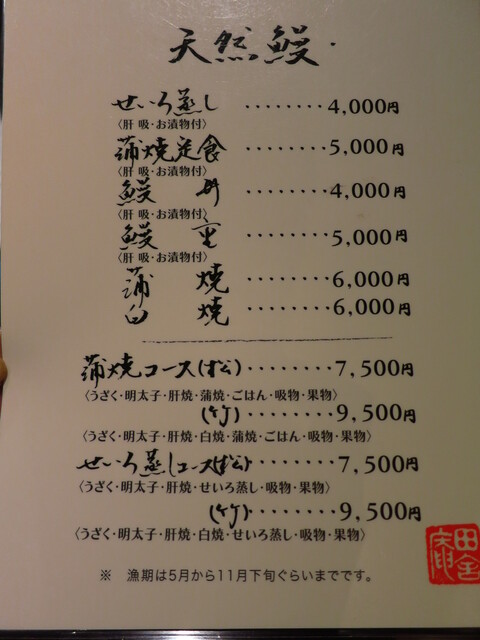 天然鰻
せいろ蒸し ········4,000円
〈肝 吸・お漬物付〉
蒲焼定食 ········5,000円
〈肝 吸・お漬物付〉
鰻 丼 ········4,000円
〈肝 吸・お漬物付〉
鰻 重 ········5,000円
〈肝 吸・お漬物付〉
蒲 焼 ········6,000円
白 焼 ········6,000円
蒲焼コース(松) ········7,500円
〈うざく・明太子・肝焼・蒲焼・ごはん・吸物・果物〉
(竹) ········9,500円
〈うざく・明太子・肝焼・白焼・蒲焼・ごはん・吸物・果物〉
せいろ蒸しコース(松) ·······7,500円
〈うざく・明太子・肝焼・せいろ蒸し・吸物・果物〉
(竹) ········9,500円
〈うざく・明太子・肝焼・白焼・せいろ蒸し・吸物・果物〉
※ 漁期は5月から11月下旬ぐらいまでです。
田舎